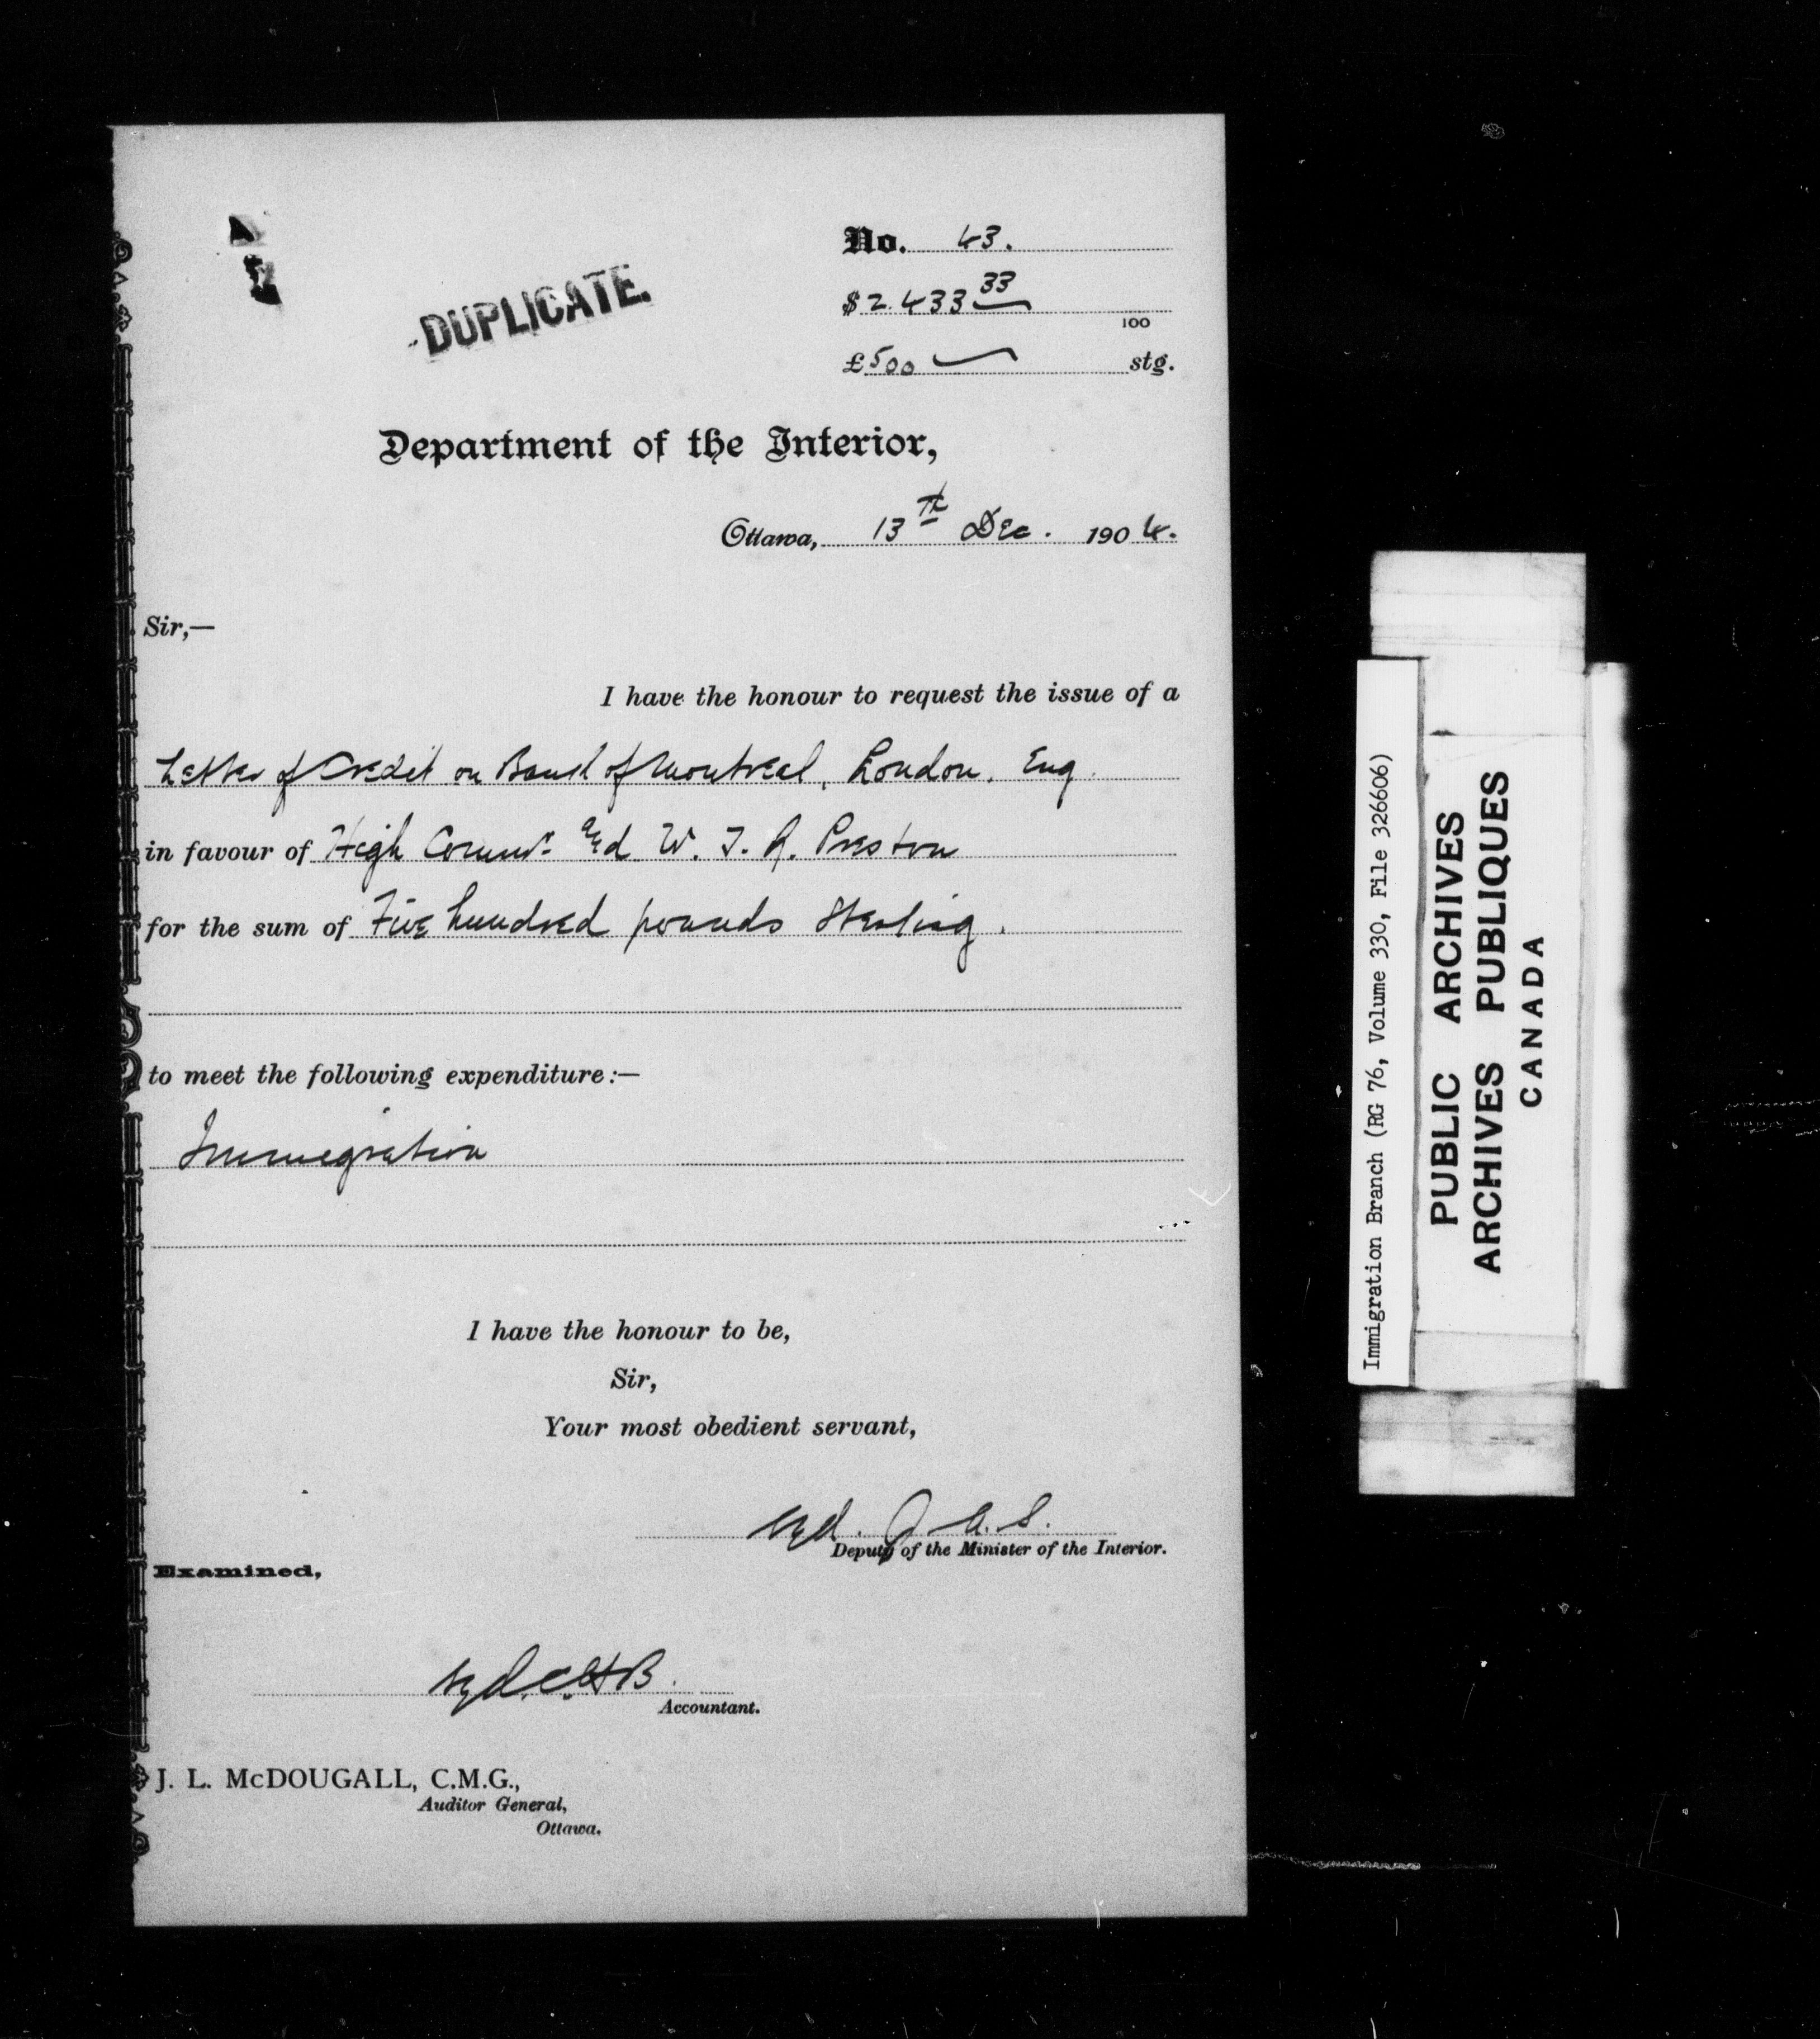 No. 43.
DUPLICATE.
$ 2.433 33
100
£ 500 stg.
Department of the Interior,
Ottawa, 13th Dec. 1904.
Sir,—
I have the honour to request the issue of a
Letter of Credit on Bank of Montreal, London, Eng.
in favour of High Commr. and W. T. R. Preston
for the sum of Five hundred pounds Sterling.
to meet the following expenditure:—
Immigration
I have the honour to be,
Sir,
Your most obedient servant,
Sgd. J. A. S.
Deputy of the Minister of the Interior.
Examined,
Sgd. C.H.B.
Accountant.
J. L. McDOUGALL, C.M.G.,
Auditor General,
Ottawa.
Immigration Branch (RG 76, Volume 330, File 326606)
PUBLIC ARCHIVES
ARCHIVES PUBLIQUES
CANADA